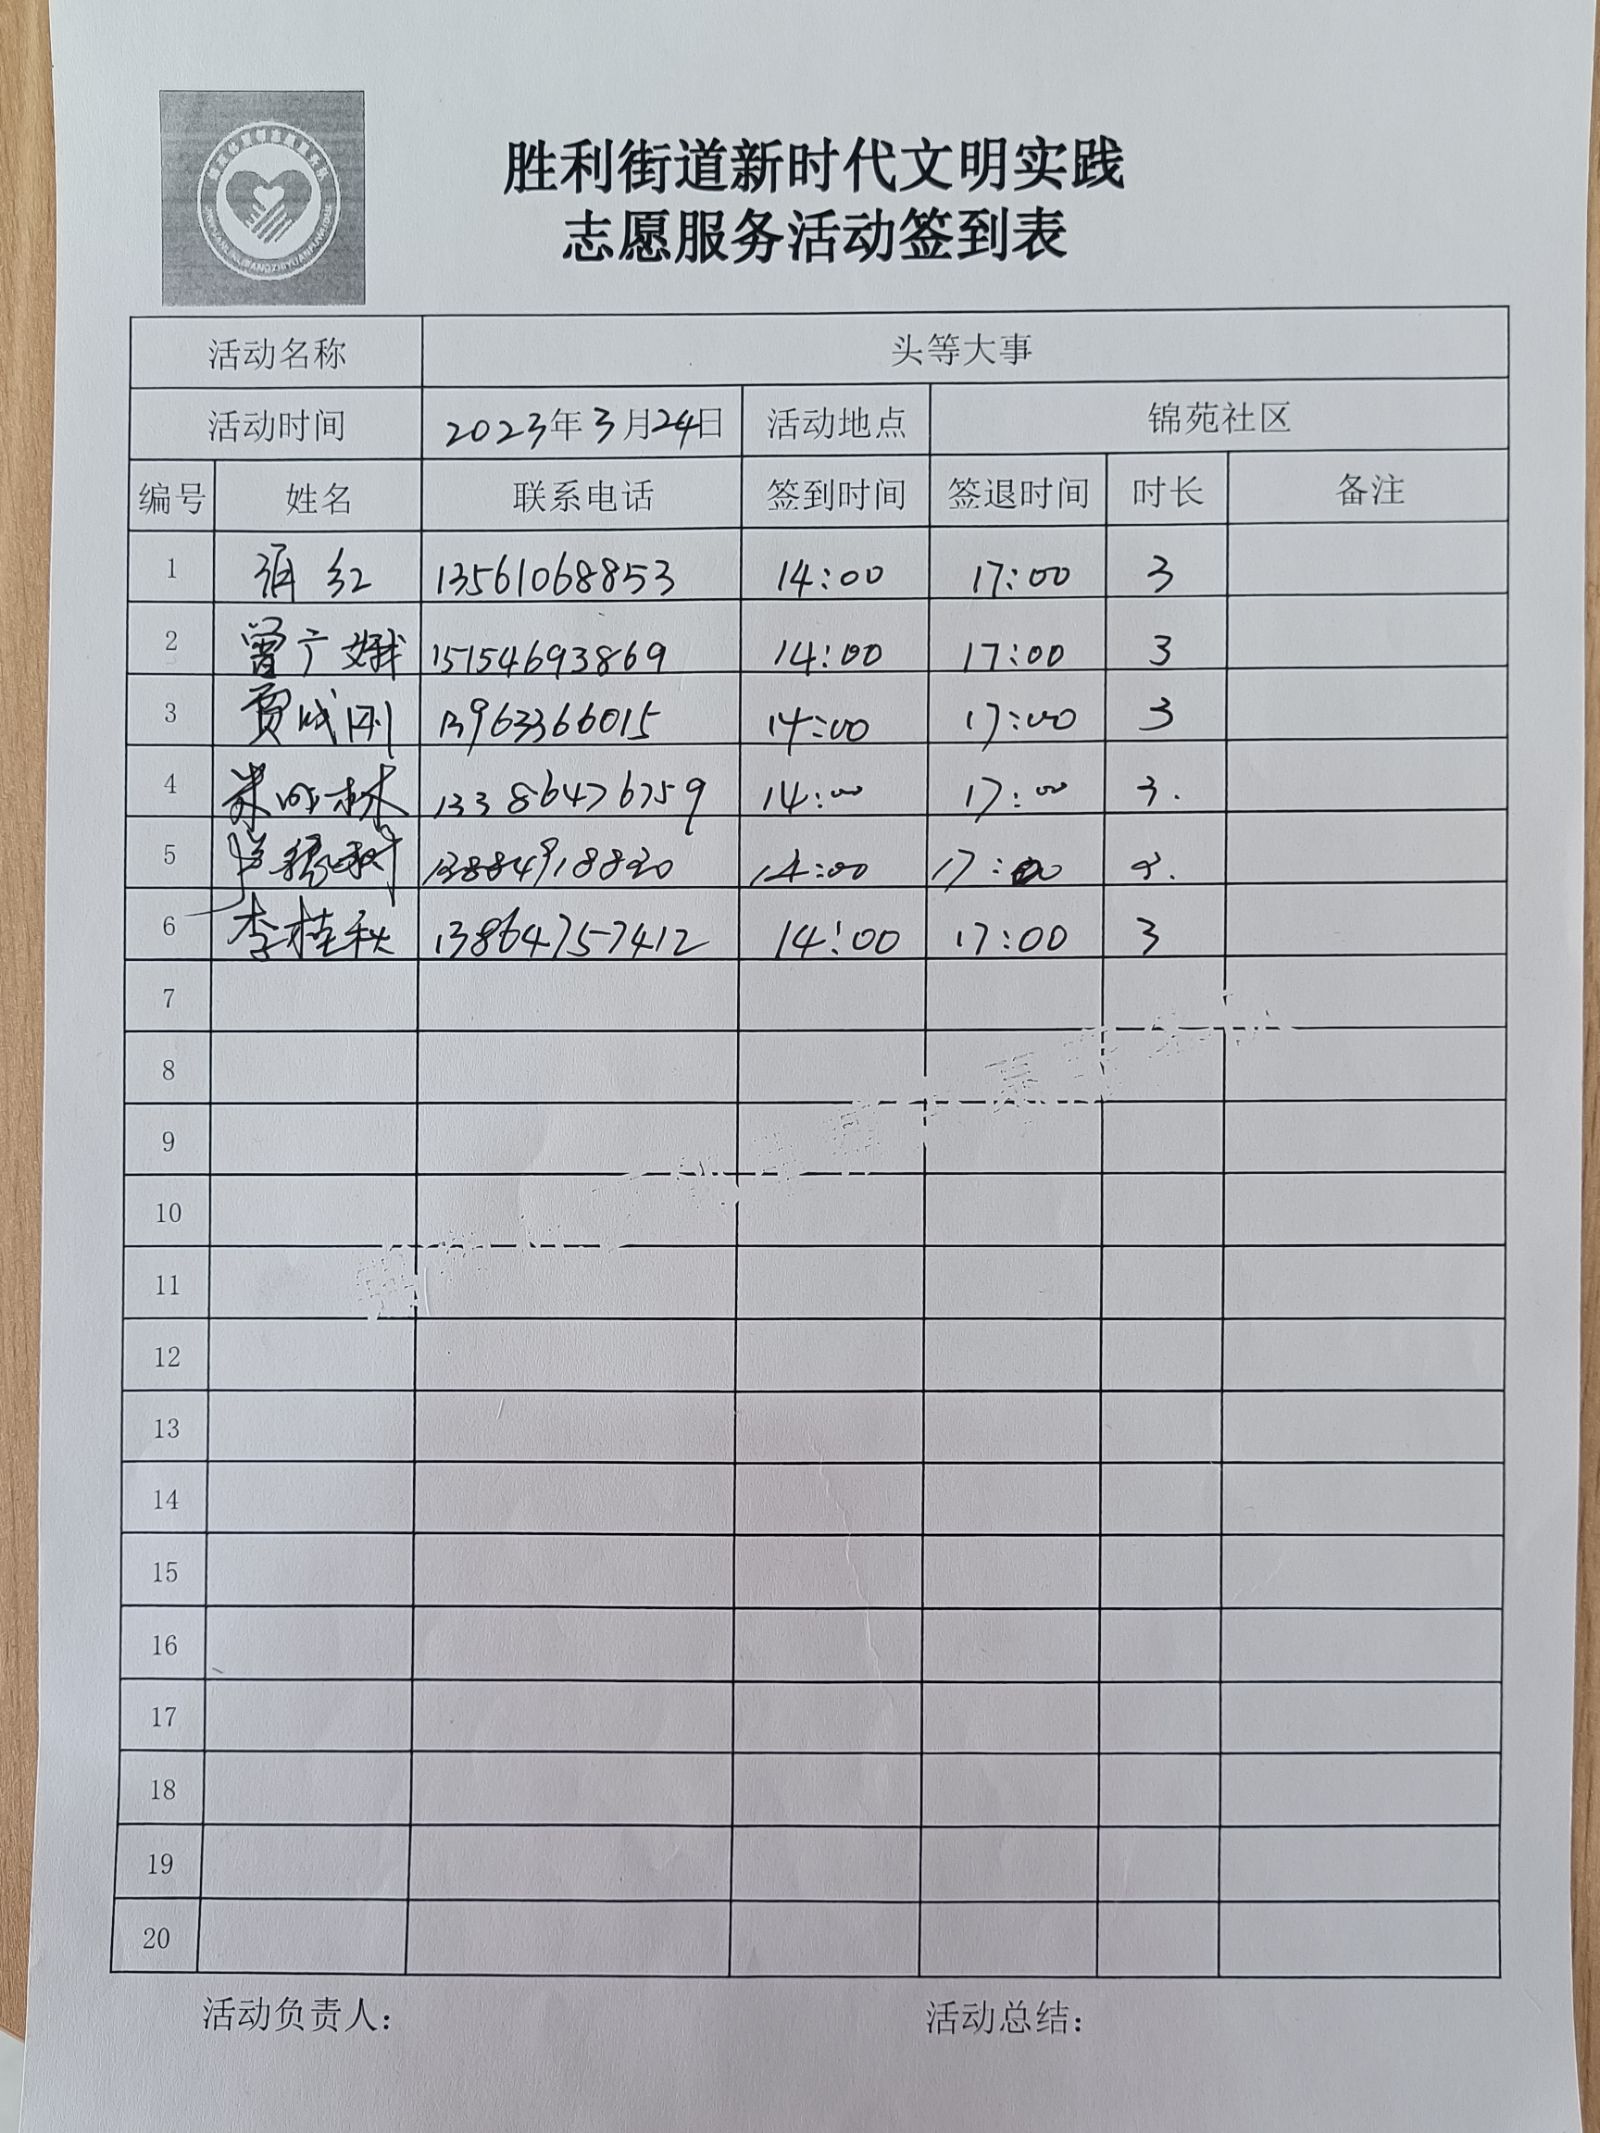 胜利街道新时代文明实践
志愿服务活动签到表
活动名称 头等大事
活动时间 2023年3月24日 活动地点 锦苑社区
编号 姓名 联系电话 签到时间 签退时间 时长 备注
1 红 13561068853 14:00 17:00 3
2 曾广娥 15154693869 14:00 17:00 3
3 贾成刚 13963366015 14:00 17:00 3
4 林 13386476759 14:00 17:00 3.
5 13884918820 14:00 17:00 3.
6 李桂秋 13864757412 14:00 17:00 3
7
8
9
10
11
12
13
14
15
16
17
18
19
20
活动负责人： 活动总结：